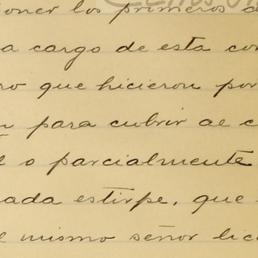 oner los primeros d
a cargo de esta con
ro que hicieron por
para cubrir de c
o parcialmente
ada estirpe, que
mismo señor lic